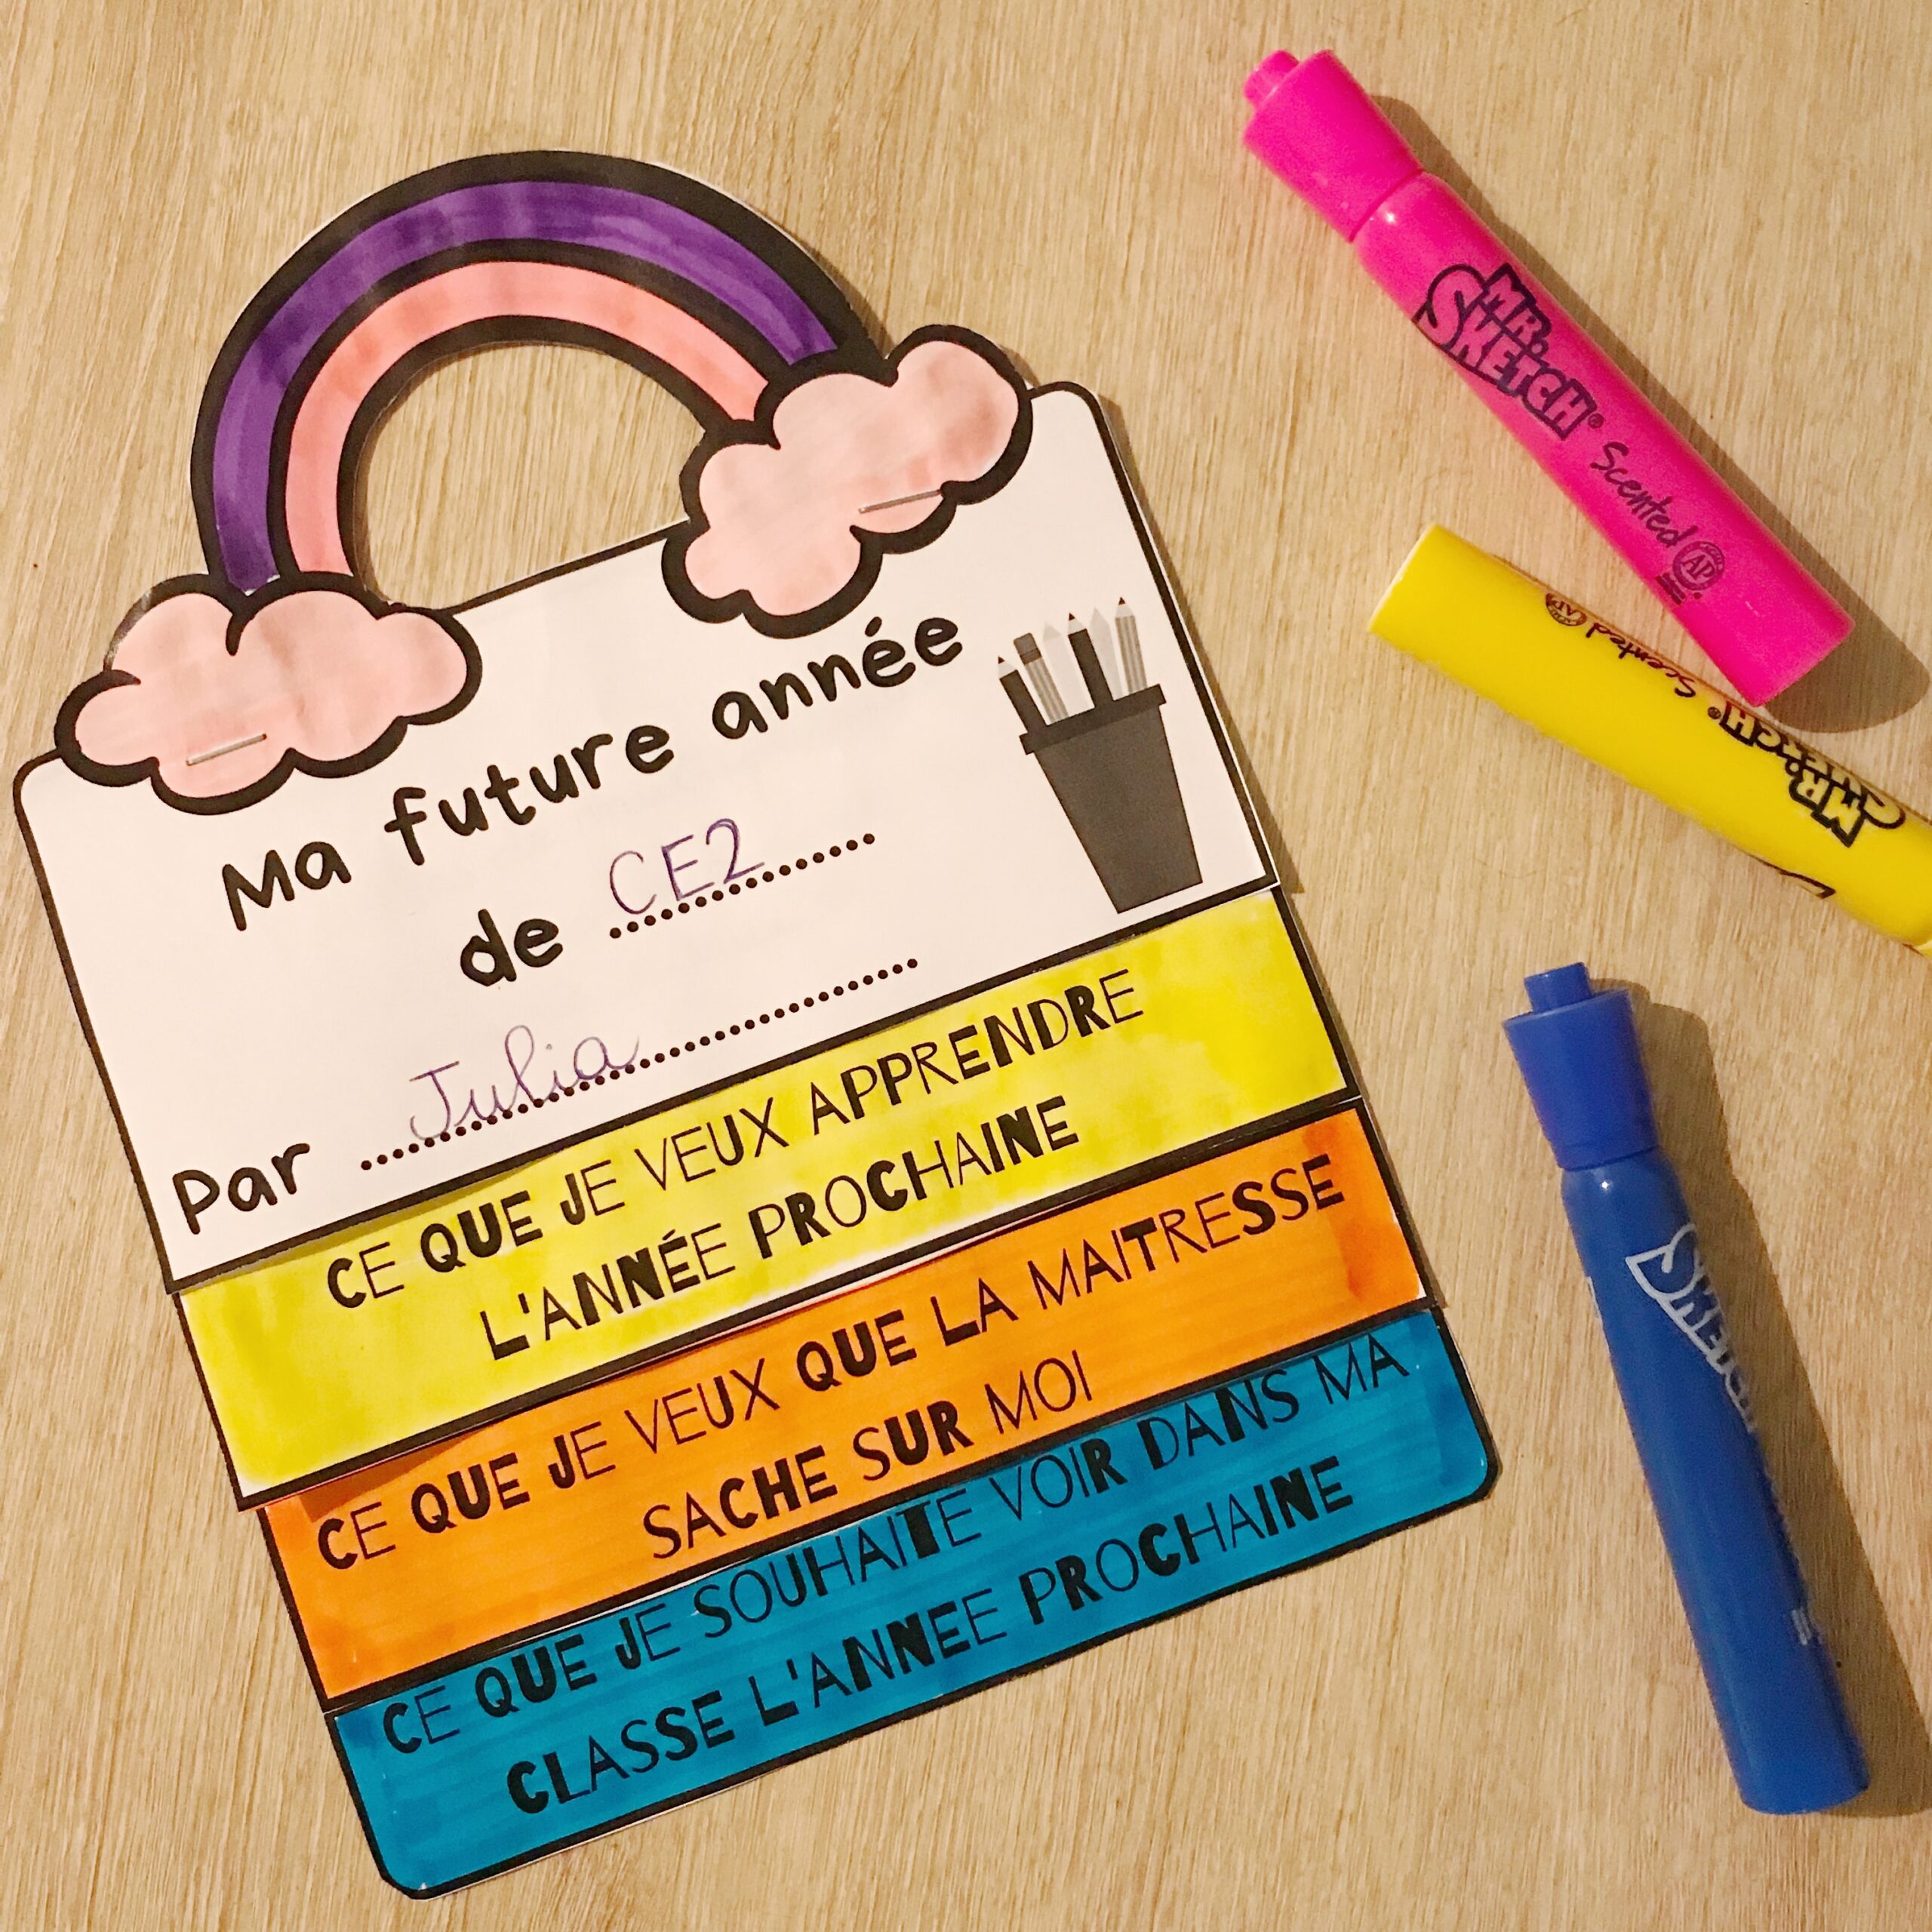 Ma future année
de CE2
Par Julia
CE QUE JE VEUX APPRENDRE
L'ANNÉE PROCHAINE
CE QUE JE VEUX QUE LA MAITRESSE
SACHE SUR MOI
CE QUE JE SOUHAITE VOIR DANS MA
CLASSE L'ANNEE PROCHAINE
MR.
SKETCH®
Scented
AP
MR.
SKETCH®
Scented
AP
SKETCH